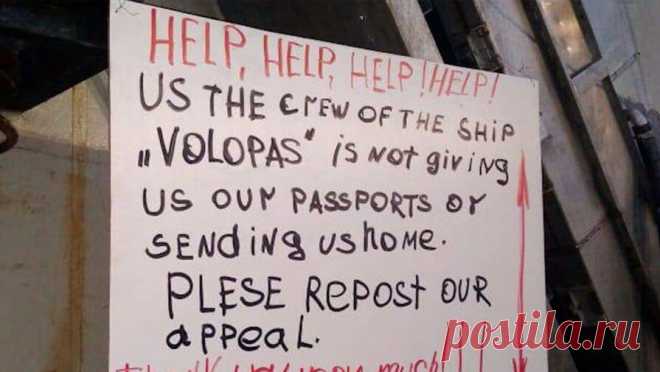 HELP, HELP, HELP! HELP!
US THE CREW OF THE SHIP
„VOLOPAS" is NOT giving
US OUr PASSPORTS Or
SENding US home.
PLESE REPOST OUR
appeal.
much!!!
postila.ru